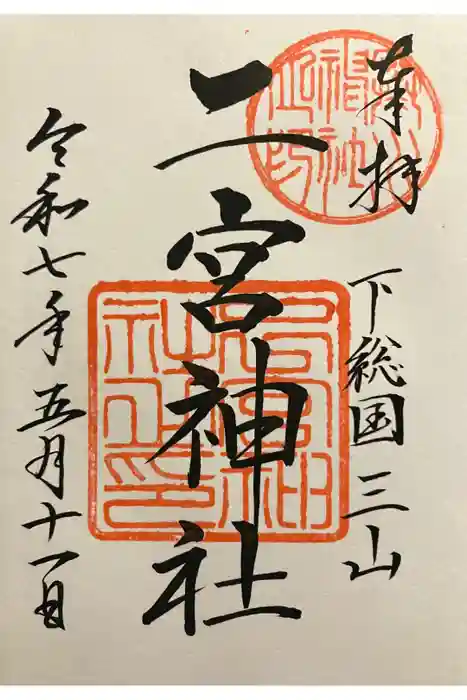 奉拝
下総国三山
二宮神社
令和七年五月十一日